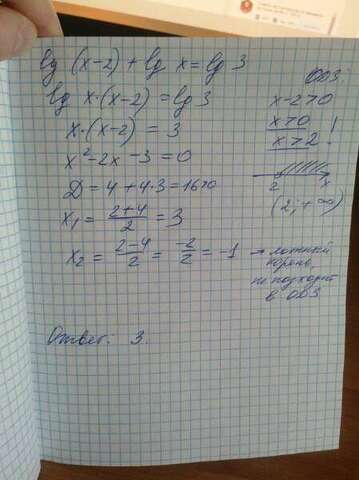 lg (x-2) + lg x = lg 3
lg x·(x-2) = lg 3
x·(x-2) = 3
x²-2x-3=0
D = 4 + 4·3 = 16>0
x₁ = (2+4)/2 = 3
x₂ = (2-4)/2 = -2/2 = -1 → ложный корень, не подходит в ОДЗ
ОДЗ.
x-2>0
x>0
x>2 !
2 x
(2; +∞)
Ответ: 3.